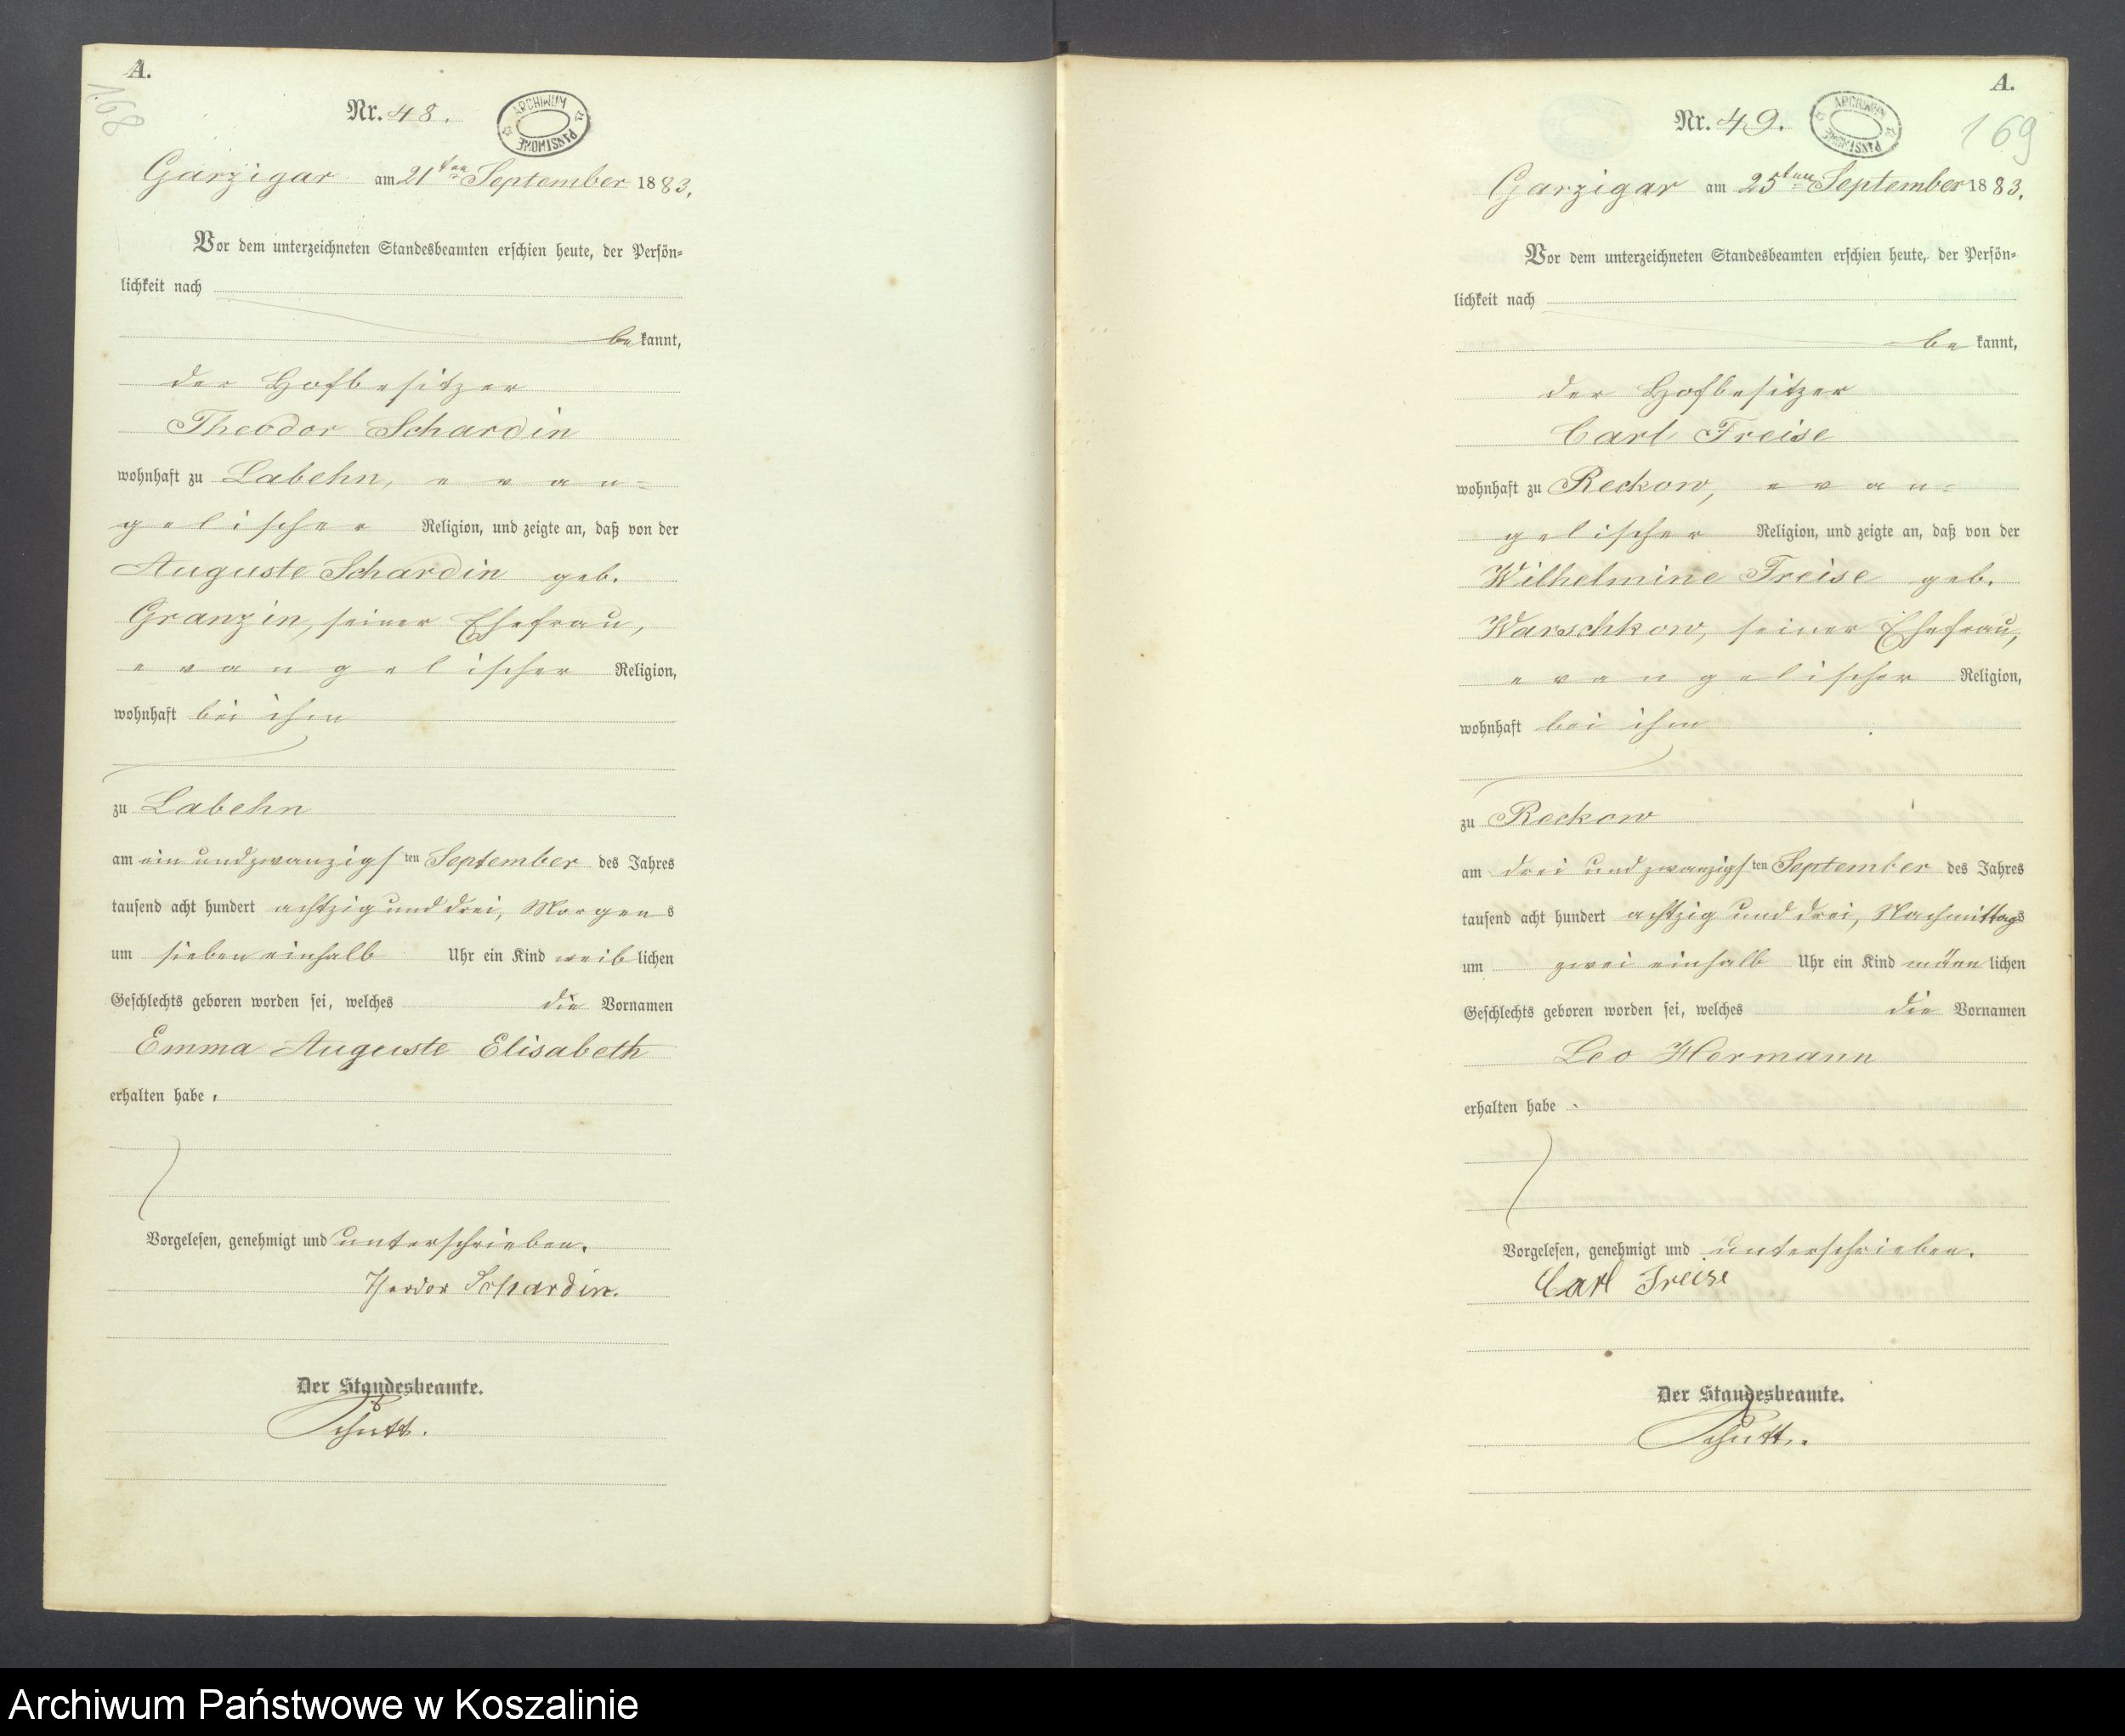 A.
168
Nr. 48.
ARCHIWUM PAŃSTWOWE
Garzigar am 21ten September 1883.
Vor dem unterzeichneten Standesbeamten erschien heute, der Persön=
lichkeit nach
be kannt,
der Hofbesitzer
Theodor Schardin
wohnhaft zu Labehn, evan=
gelischer Religion, und zeigte an, daß von der
Auguste Schardin geb.
Granzin, seiner Ehefrau,
evangelischer Religion,
wohnhaft bei ihm
zu Labehn
am ein und zwanzigsten September des Jahres
tausend acht hundert achtzig und drei, Morgens
um sieben einhalb Uhr ein Kind weiblichen
Geschlechts geboren worden sei, welches die Vornamen
Emma Auguste Elisabeth
erhalten habe.
Vorgelesen, genehmigt und unterschrieben.
Theodor Schardin.
Der Standesbeamte.
A.
169
Nr. 49.
ARCHIWUM PAŃSTWOWE
Garzigar am 25ten September 1883.
Vor dem unterzeichneten Standesbeamten erschien heute, der Persön=
lichkeit nach
be kannt,
der Hofbesitzer
Carl Freise
wohnhaft zu Reckow, evan=
gelischer Religion, und zeigte an, daß von der
Wilhelmine Freise geb.
Warschkow, seiner Ehefrau,
evangelischer Religion,
wohnhaft bei ihm
zu Reckow
am drei und zwanzigsten September des Jahres
tausend acht hundert achtzig und drei, Nachmittags
um zwei einhalb Uhr ein Kind männlichen
Geschlechts geboren worden sei, welches die Vornamen
Leo Hermann
erhalten habe.
Vorgelesen, genehmigt und unterschrieben.
Carl Freise
Der Standesbeamte.
Archiwum Państwowe w Koszalinie